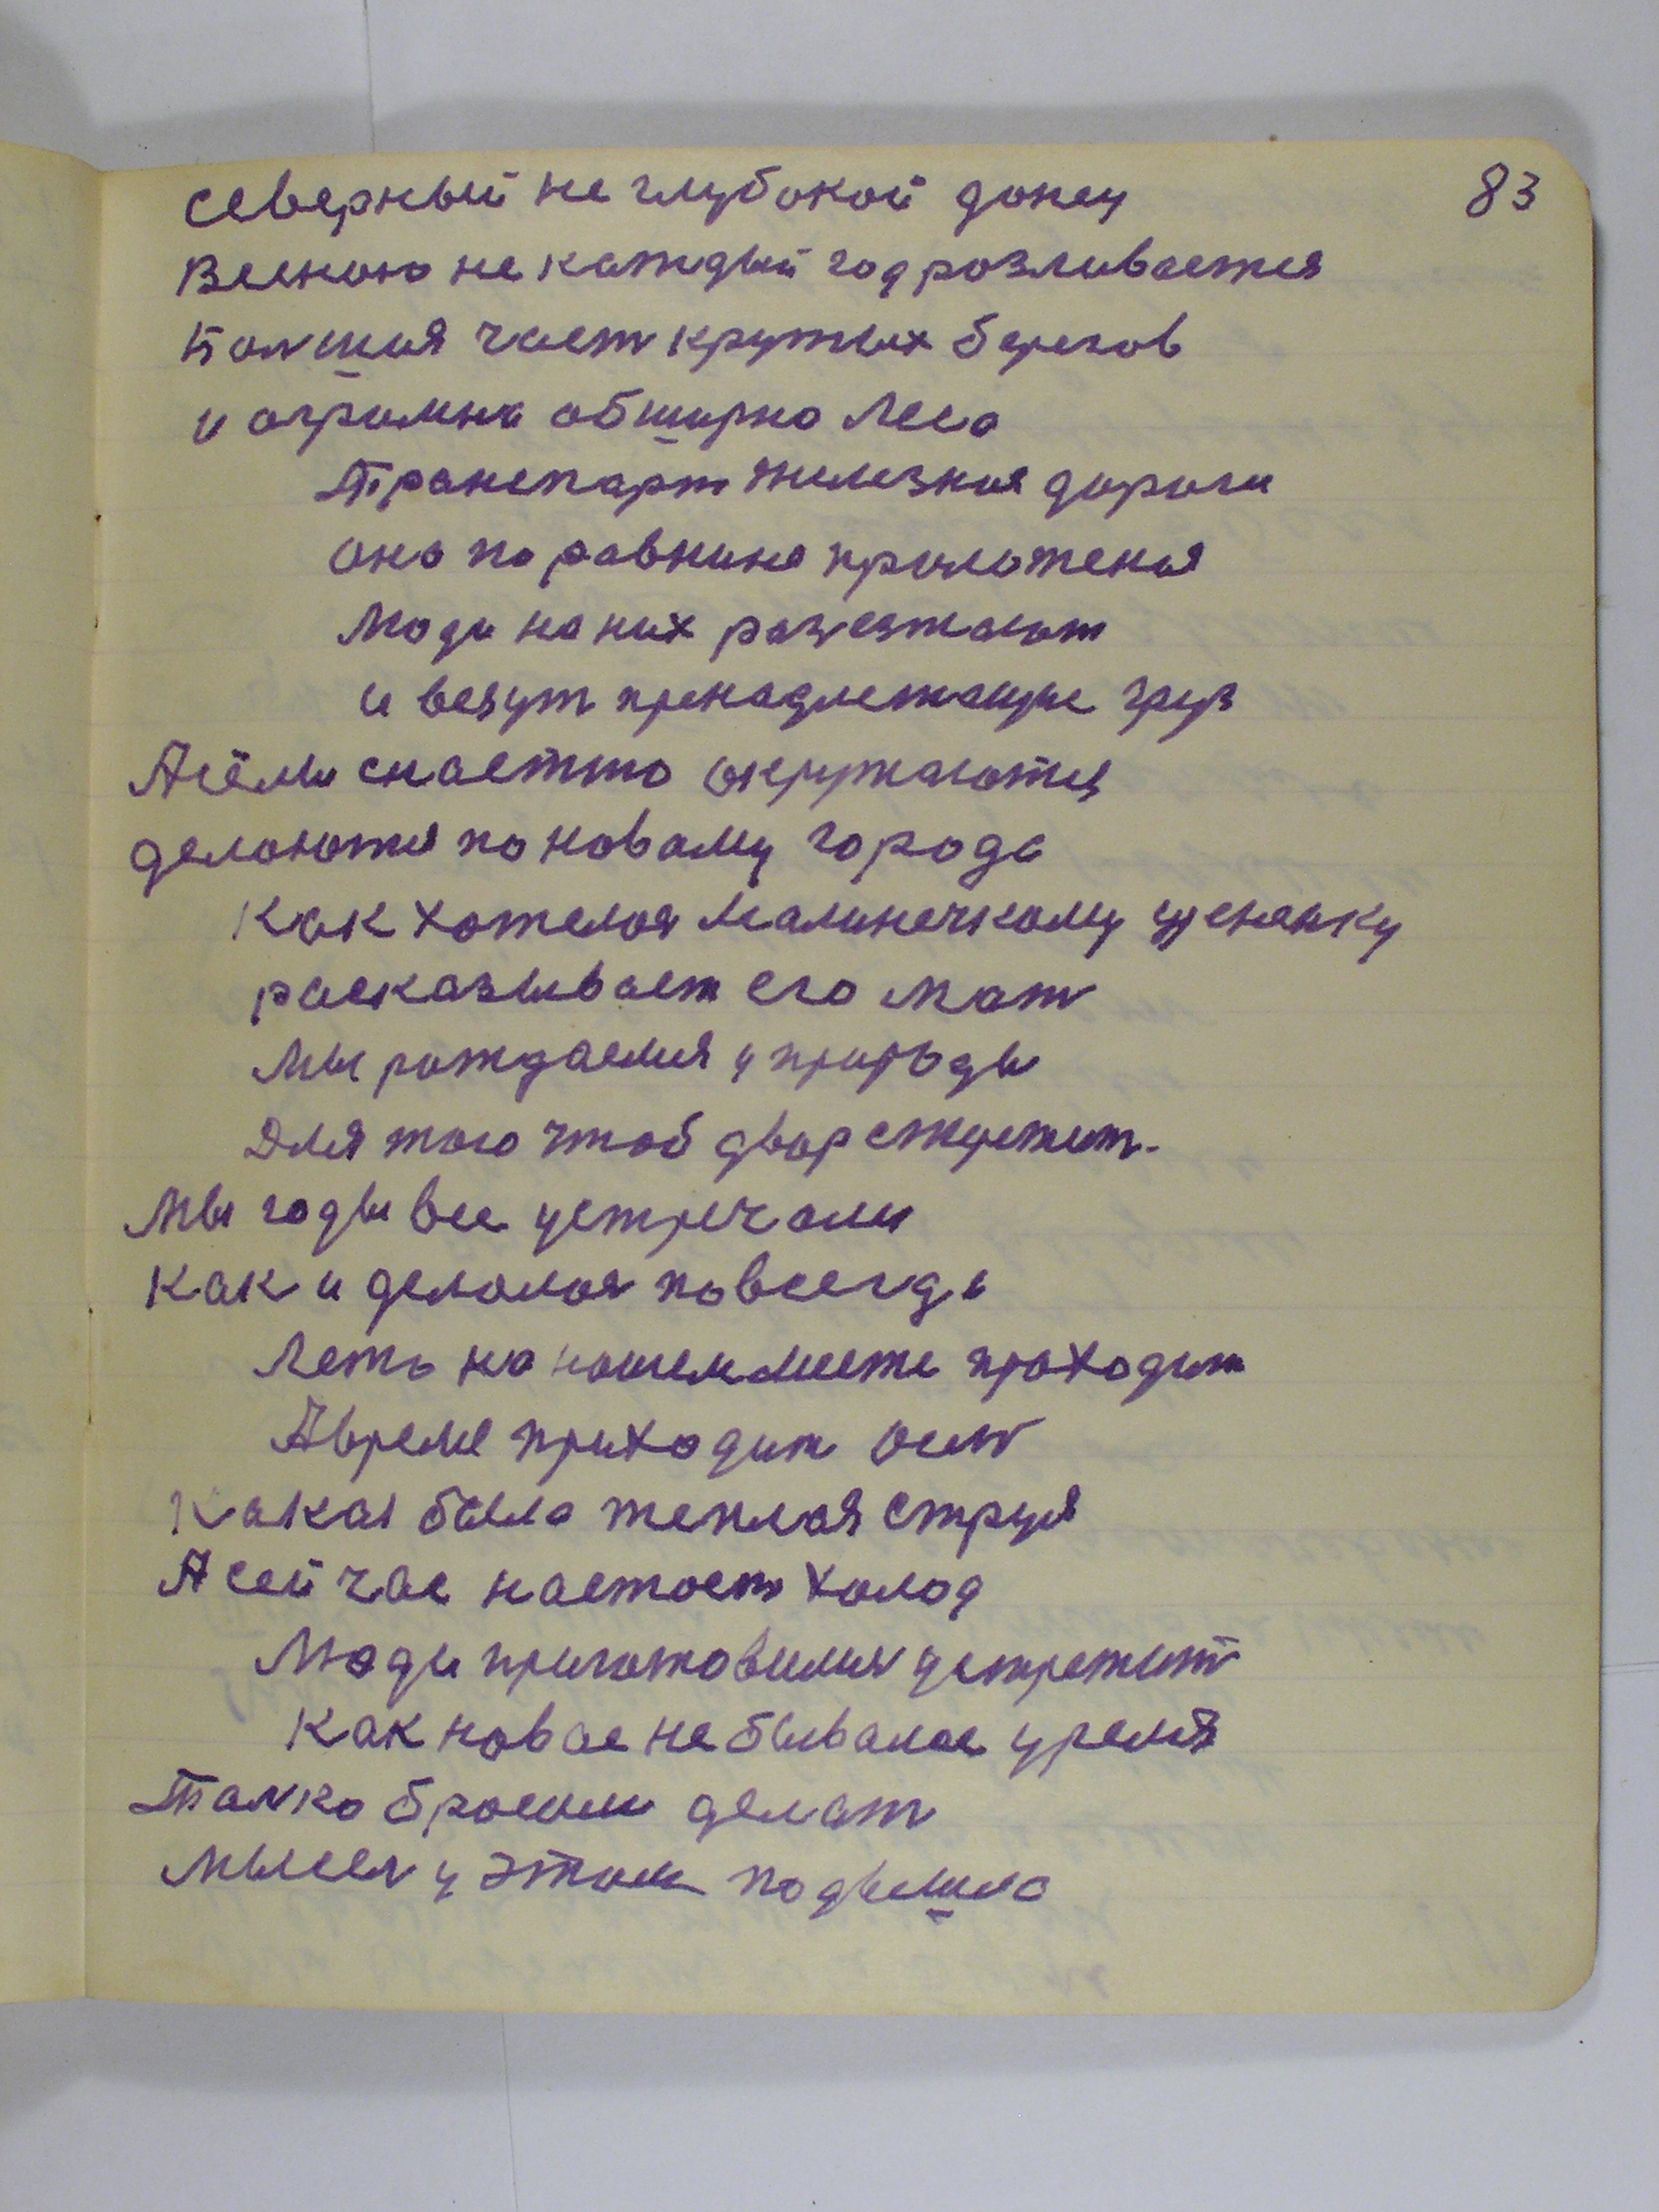 83
северный не глубокой донец
Весною не каждый год розливается
Болшая част крутых берегов
и огромна обширно леса
Транспарт железная дороги
оно по равнине проложеная
Люди на них разезжают
и везут пренадлежащие груз
А сёлы окружаются
делаются по новаму города
Как хотелоя малинечкому щененку
расказывает его мат
Мы рождаемся у природы
Для того чтоб двор стережит.
Мы годы все устречали
Как и делалоя повсегды
Лето на нашем месте проходит
А время приходит осен
Какая была теплая струя
А сейчас настоет холод
Люди приготовились устретит
Как новое не бывалое уремя
Толко бросили делат
мысел у этом подвышло